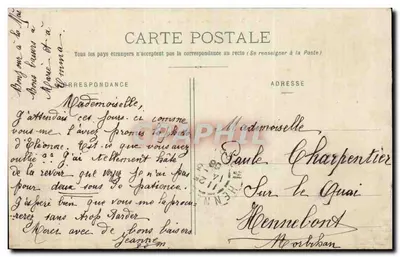 CARTE POSTALE
Tous les pays étrangers n'acceptent pas la correspondance au recto (Se renseigner à la Poste)
CORRESPONDANCE
ADRESSE
Bonjour à la
Bons baisers à
Marie et à
Emma
Mademoiselle,
J'attendais ces jours ci comme
vous me l'avez promis la
d'Eléonne. Est-ce que vous avez
oublié J'ai tellement hâte
de la revoir que vrai je n'ai pas
pour deux sous de patience.
J'espère bien que vous me la
sans trop tarder
Merci avec de bons baisers
Jeanne
Mademoiselle
Paule Charpentier
Sur le Quai
Hennebont
Morbihan